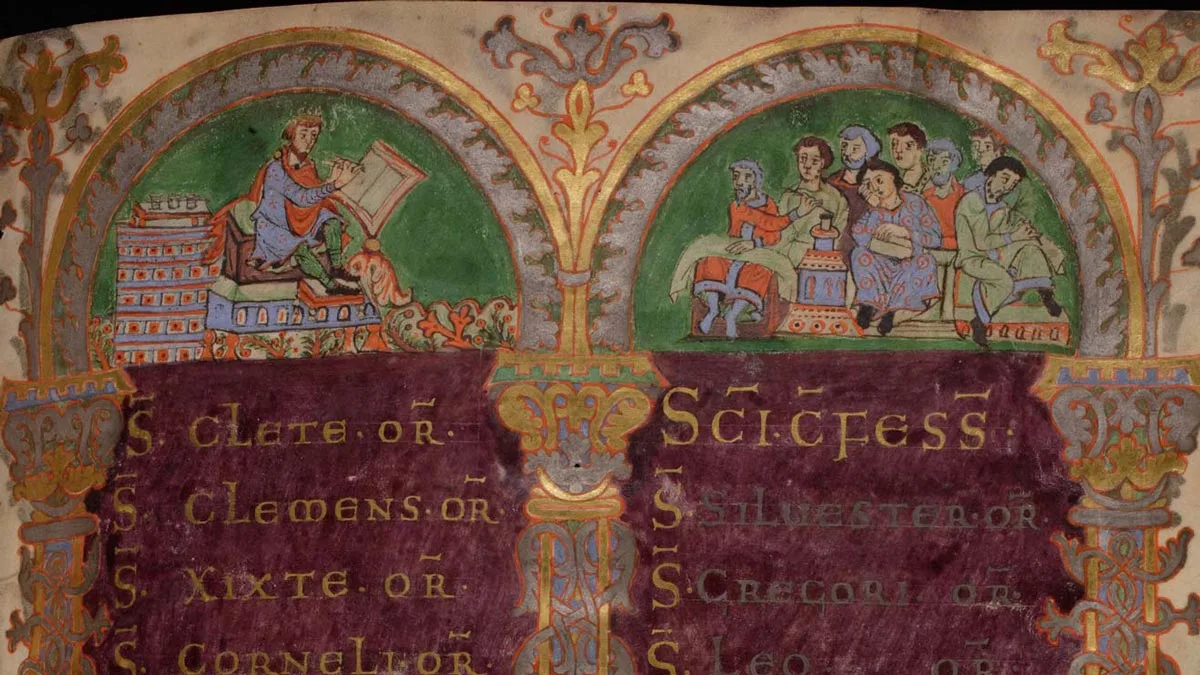 S̄. CLETE · OR̄.
S̄. CLEMENS · OR̄.
S̄. XIXTE · OR̄.
S̄. CORNELI OR̄.
SC̄I · C̄FESS̄:
S̄. SILUESTER · OR̄.
S̄. GREGORI OR̄.
S̄. LEO OR̄.